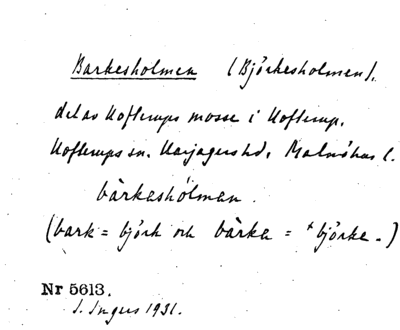 Barkesholmen (Björkesholmen),
del av Hofterups mosse i Hofterup,
Hofterups sn. Harjagers hd, Malmöhus l.
bàrkeshólman.
(bark = björk och bàrka = *björke-)
Nr 5613.
S. Ingers 1931.